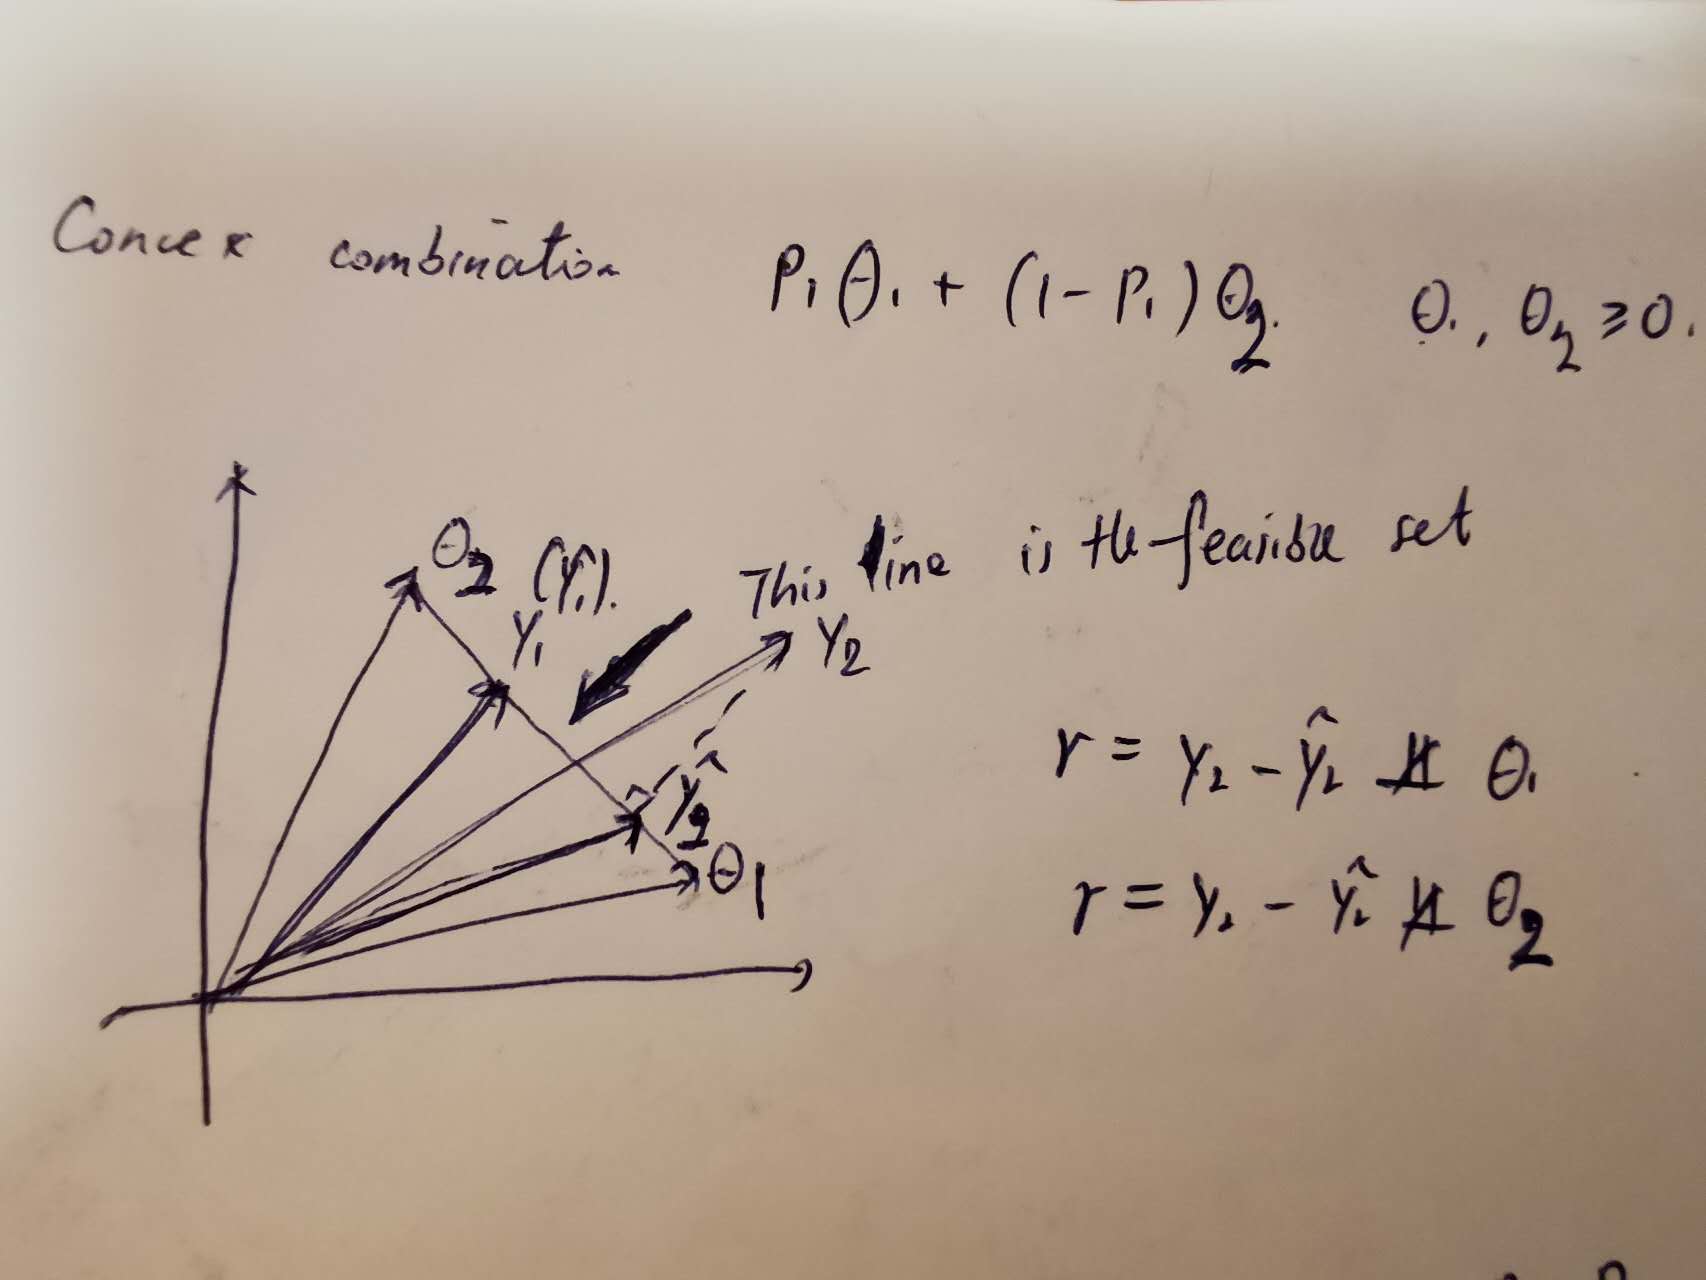 Convex combination P₁θ₁ + (1-P₁)θ₂ θ₁, θ₂ ≥ 0.
θ₂ (Ŷ₁). This line is the feasible set
Y₁ Y₂
r = Y₂ - Ŷ₂ ⊥̸ θ₁
Ŷ₂
θ₁
r = Y₂ - Ŷ₂ ⊥̸ θ₂